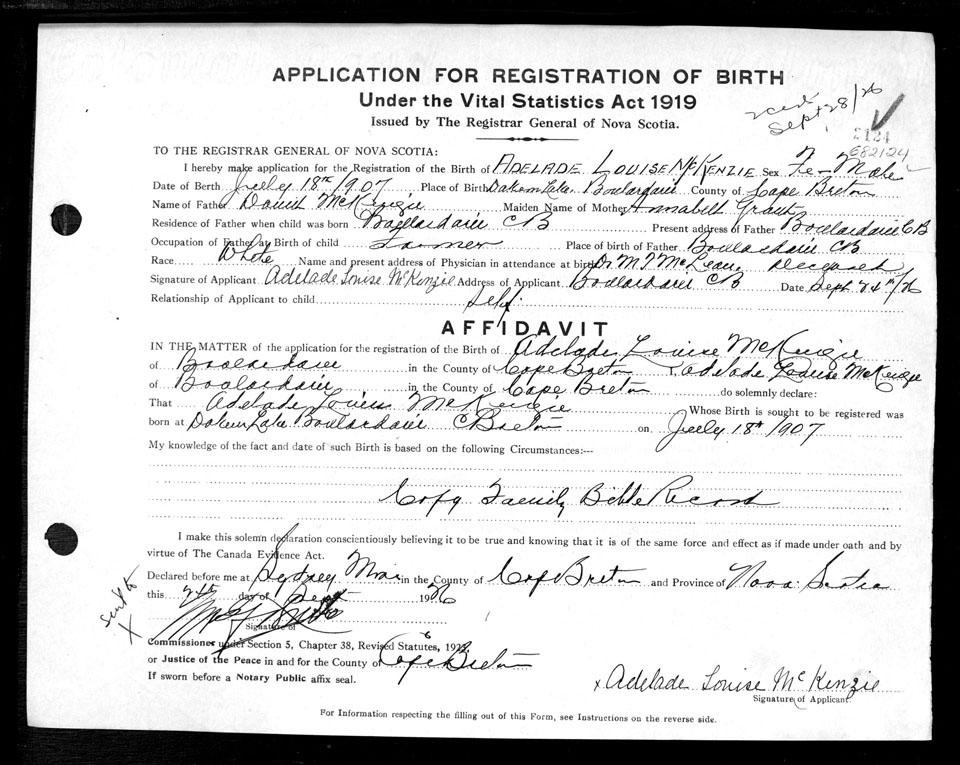 APPLICATION FOR REGISTRATION OF BIRTH
Under the Vital Statistics Act 1919
Issued by The Registrar General of Nova Scotia.
Sept 28/26
682124
TO THE REGISTRAR GENERAL OF NOVA SCOTIA:
I hereby make application for the Registration of the Birth of ADELADE LOUISE McKENZIE Sex Fe-Male
Date of Berth July 18th 1907 Place of Birth Boulardarie County of Cape Breton
Name of Father McKenzie Maiden Name of Mother Annabell Grant
Residence of Father when child was born Boulardarie CB Present address of Father Boulardarie CB
Occupation of Father at Birth of child Farmer Place of birth of Father Boulardarie CB
Race White Name and present address of Physician in attendance at birth Dr McLean, Deceased
Signature of Applicant Adelade Louise McKenzie Address of Applicant Boulardarie CB Date Sept 24th/26
Relationship of Applicant to child Self
AFFIDAVIT
IN THE MATTER of the application for the registration of the Birth of Adelade Louise McKenzie
of Boulardarie in the County of Cape Breton I Adelade Louise McKenzie
of Boulardarie in the County of Cape Breton do solemnly declare:
That Adelade Louise McKenzie Whose Birth is sought to be registered was
born at Boulardarie C Breton on July 18th 1907
My knowledge of the fact and date of such Birth is based on the following Circumstances:--
Copy Family Bible Record
I make this solemn declaration conscientiously believing it to be true and knowing that it is of the same force and effect as if made under oath and by
virtue of The Canada Evidence Act.
Declared before me at Sydney Mines in the County of Cape Breton and Province of Nova Scotia
this 24th day of Sept 1926
sent to
X
Signature of
Commissioner under Section 5, Chapter 38, Revised Statutes, 192
or Justice of the Peace in and for the County of Cape Breton
If sworn before a Notary Public affix seal.
x Adelade Louise McKenzie
Signature of Applicant.
For Information respecting the filling out of this Form, see Instructions on the reverse side.